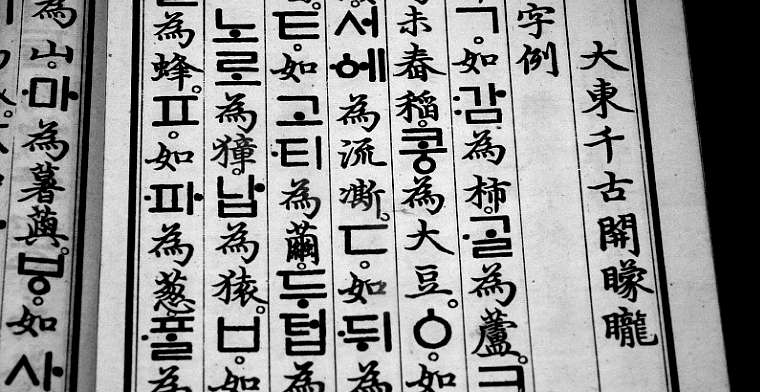 大東千古開矇矓
字例
ㄱ。如:감為柿。·ᄀᆞᆯ為蘆。ㅋ
未舂稻。콩為大豆。ㆁ。如
서·에為流凘。ㄷ。如·뒤為
ㅌ。如고·티為繭。두텁為
노로為獐。납為猿。ㅂ。如
為蜂。ㅍ。如·파為葱。·ᄑᆞᆯ為
為山。·마為薯藇。ㅸ。如사